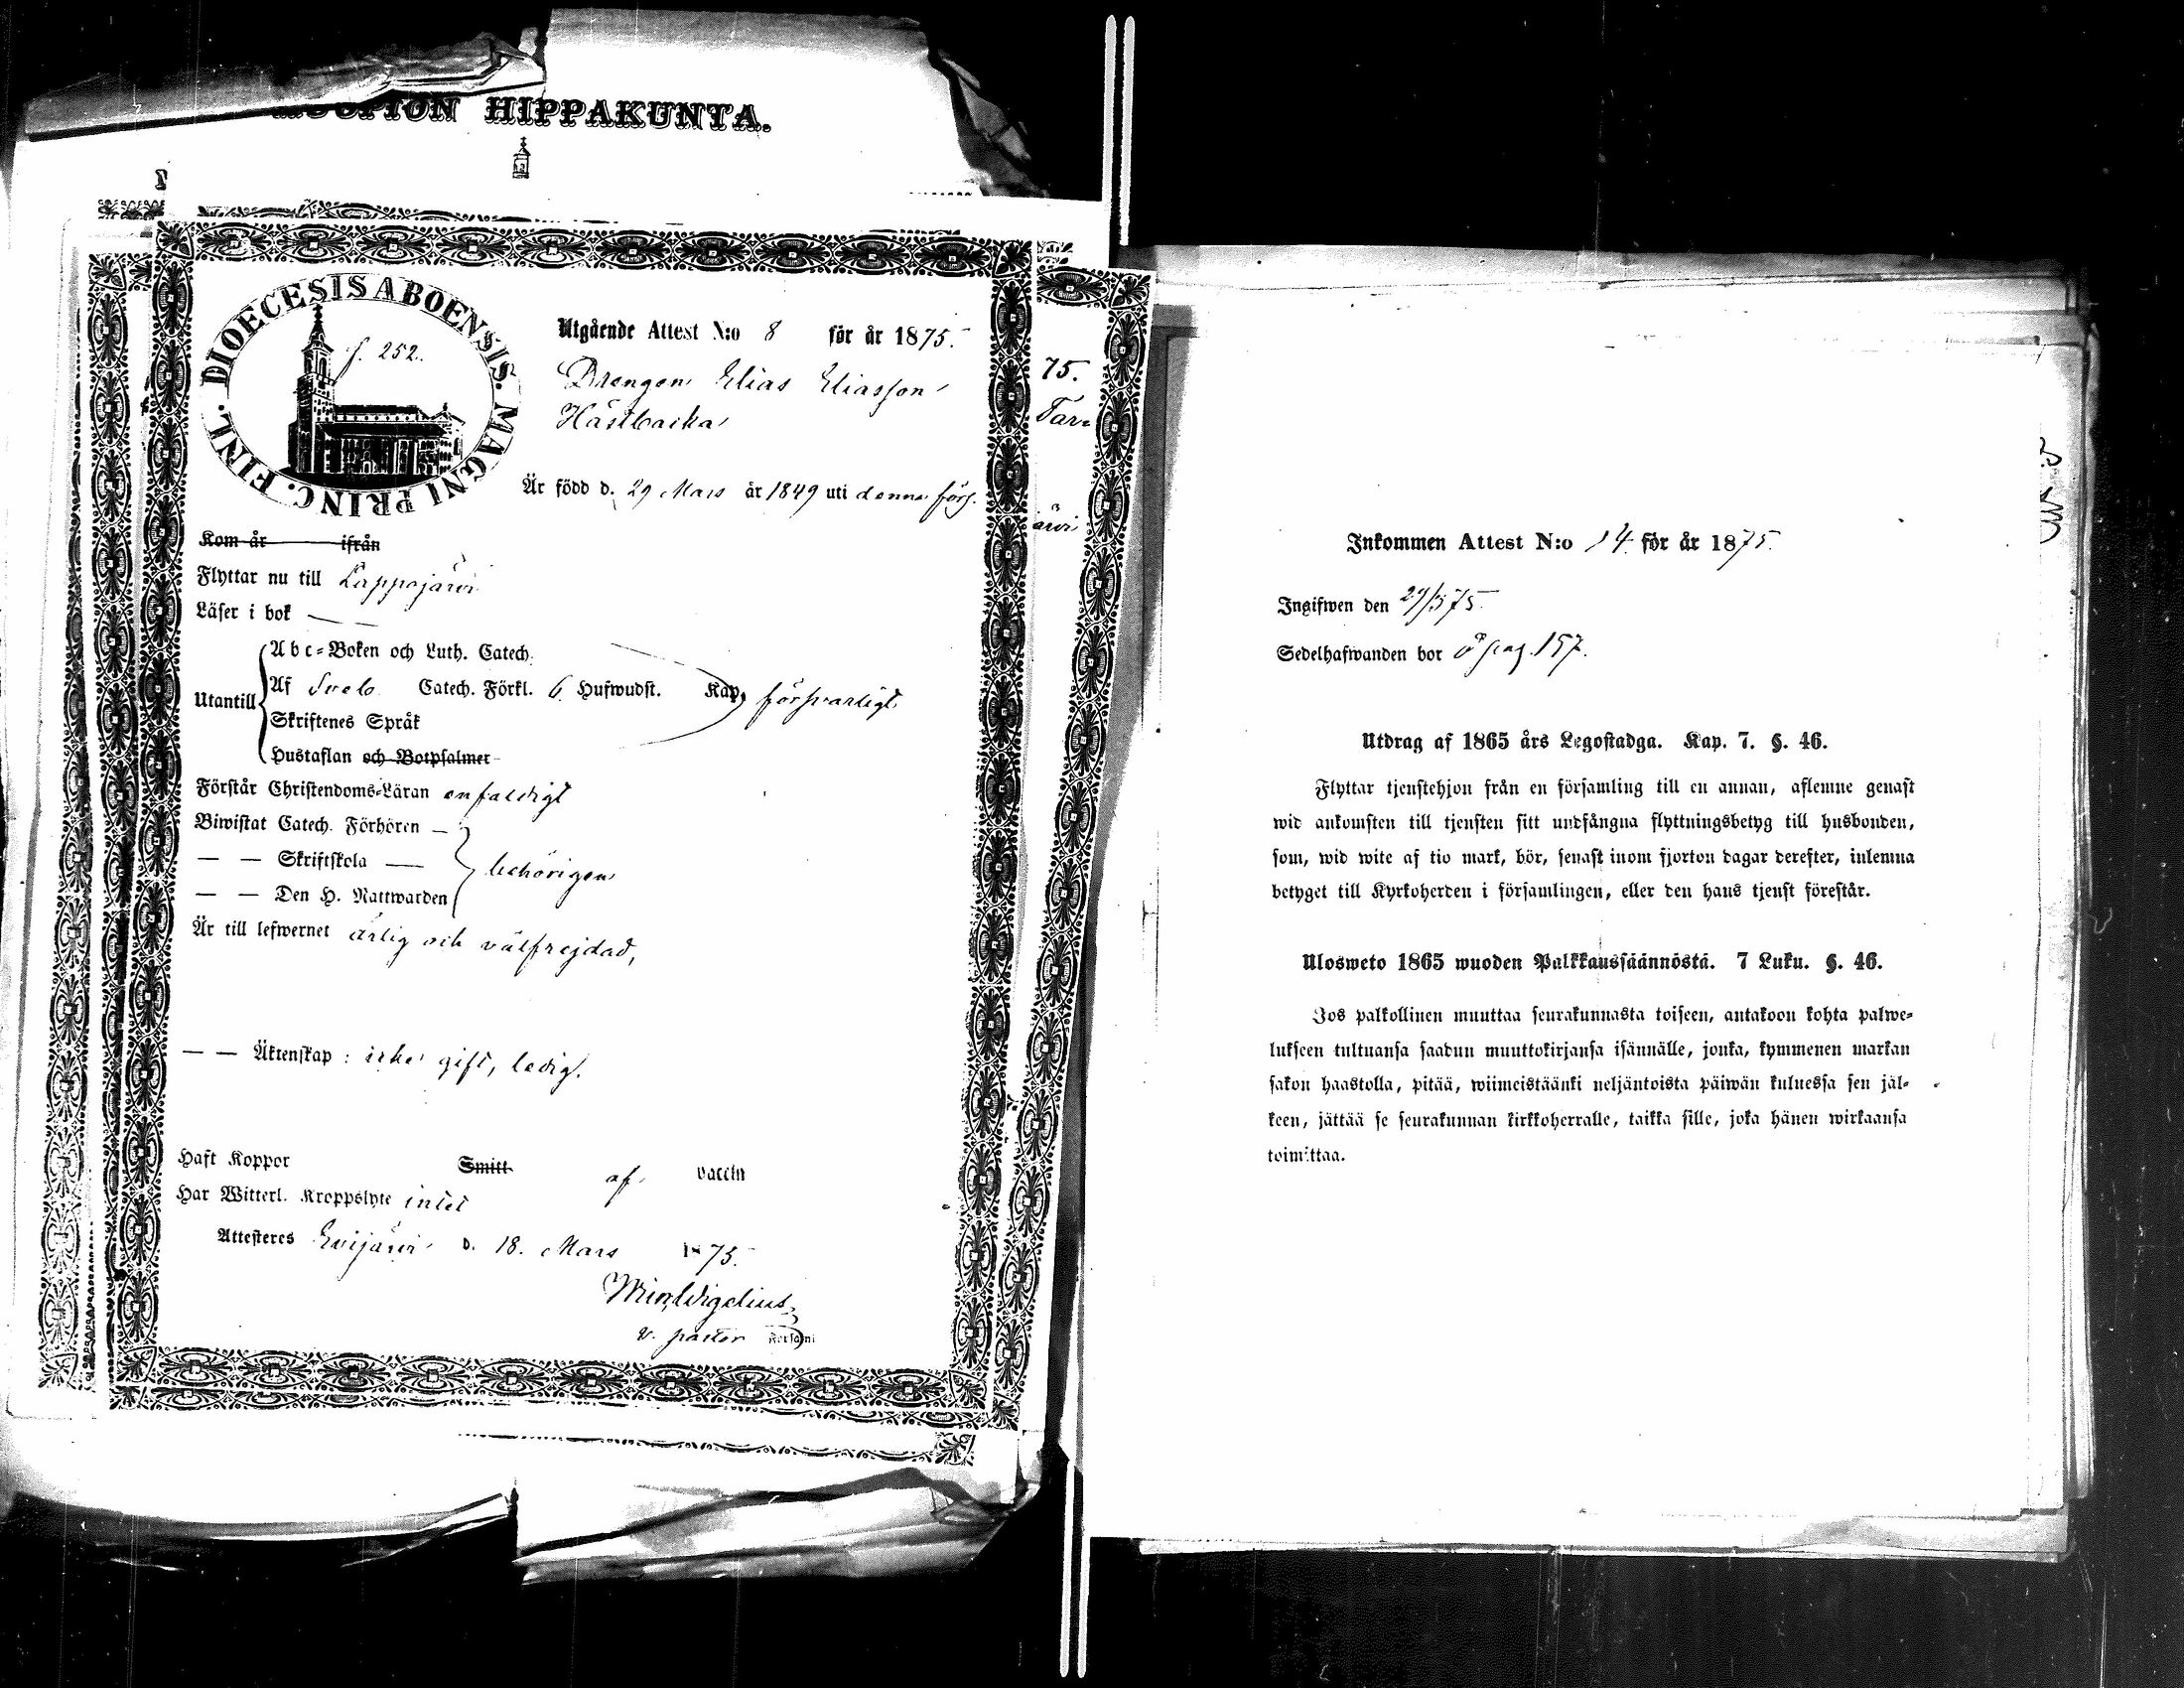 KUOPION HIPPAKUNTA.
DIOECESIS ABOENSIS. MAGNI PRINC. FINL.
f. 252.
Utgående Attest N:o 8 för år 1875.
Drengen Elias Eliasson
Hästbacka
Är född d. 29 Mars år 1849 uti denna förs.
Kom år ifrån
Flyttar nu till Lappajärvi
Läser i bok —
Abc-Boken och Luth. Catech.
Utantill Af Sveb. Catech. Förkl. 6 Hufwudst. Kap. försvarligt
Skriftenes Språk
Hustaflan och Botpsalmer
Förstår Christendoms-Läran enfaldigt
Biwistat Catech. Förhören —
— — Skriftskola — behörigen
— — Den H. Nattwarden
Är till lefwernet ärlig och välfrejdad,
— — Äktenskap : icke gift, ledig.
Haft Koppor Smitt af vaccin
Har Witterl. Kroppslyte intet
Attesteres Evijärvi d. 18. Mars 1875.
v. pastor
75.
ärvi
Inkommen Attest N:o 14 för år 1875.
Ingifwen den 29/3 75.
Sedelhafwanden bor å pag. 157.
Utdrag af 1865 års Legostadga. Kap. 7. §. 46.
Flyttar tjenstehjon från en församling till en annan, aflemne genast
wid ankomsten till tjensten sitt undfångna flyttningsbetyg till husbonden,
som, wid wite af tio mark, bör, senast inom fjorton dagar derefter, inlemna
betyget till Kyrkoherden i församlingen, eller den hans tjenst förestår.
Ulosweto 1865 wuoden Palkkaussäännöstä. 7 Luku. §. 46.
Jos palkollinen muuttaa seurakunnasta toiseen, antakoon kohta palwe-
lukseen tultuansa saadun muuttokirjansa isännälle, jonka, kymmenen markan
sakon haastolla, pitää, wiimeistäänki neljäntoista päiwän kuluessa sen jäl-
keen, jättää se seurakunnan kirkkoherralle, taikka sille, joka hänen wirkaansa
toimittaa.